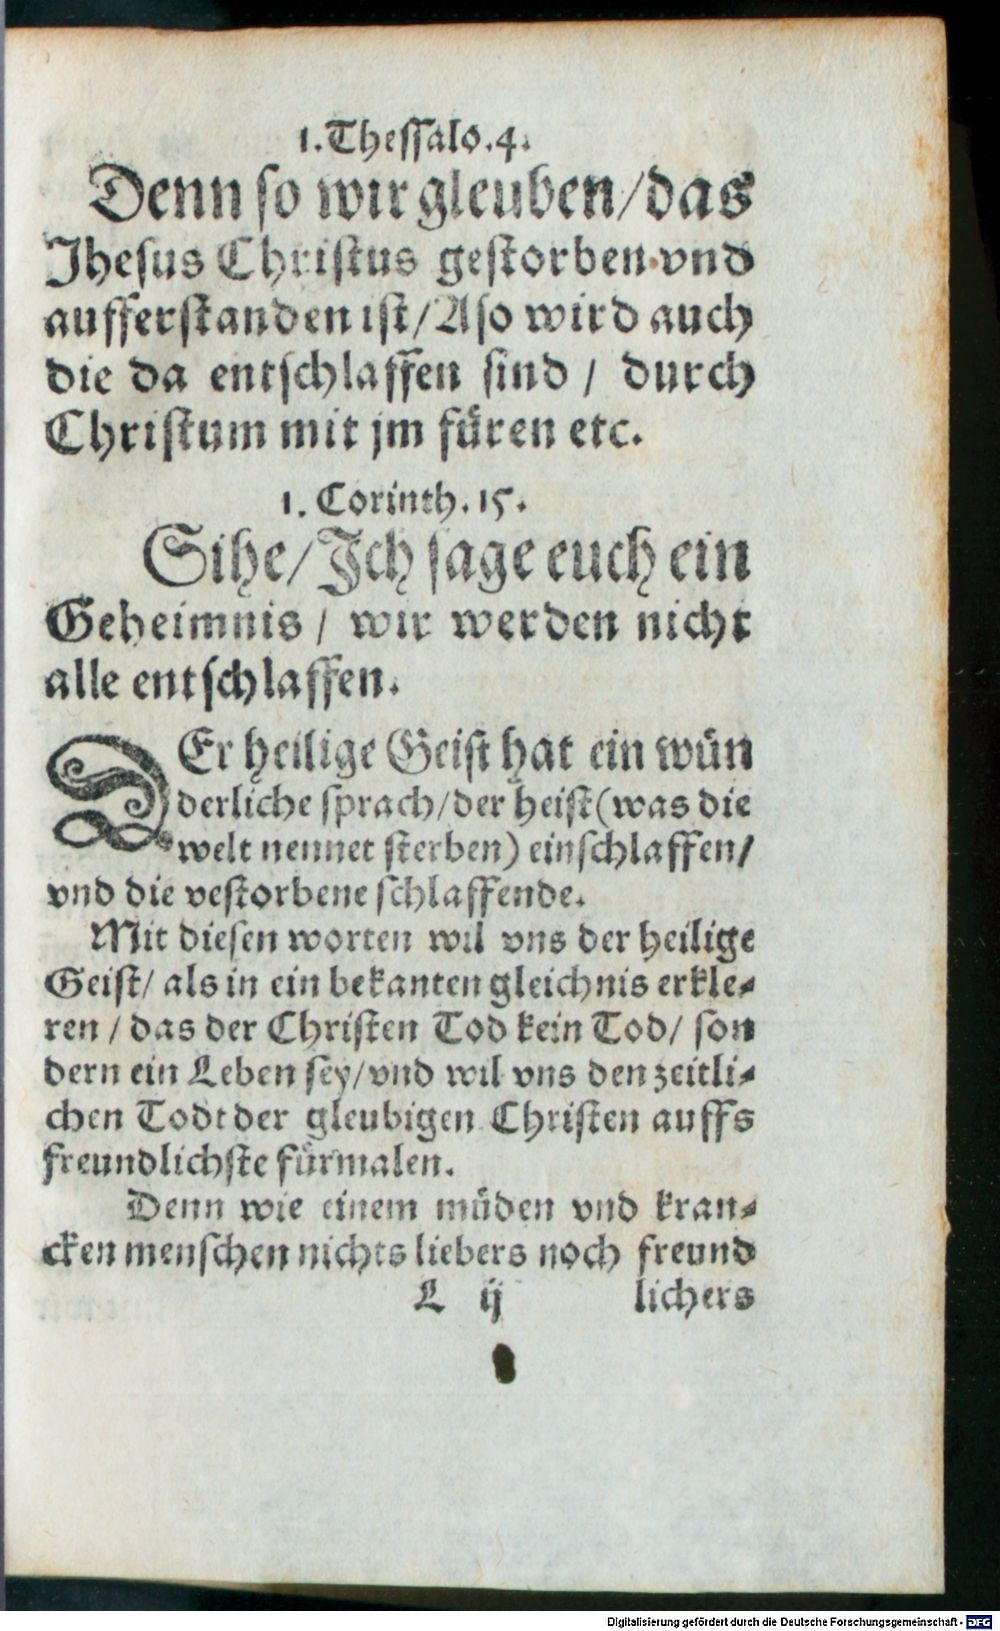 1. Thessalo. 4.
Denn so wir gleuben/das
Jhesus Christus gestorben vnd
aufferstanden ist/Aso wird auch
die da entschlaffen sind / durch
Christum mit jm füren etc.
1. Corinth. 15.
Sihe/Jch sage euch ein
Geheimnis / wir werden nicht
alle entschlaffen.
DEr heilige Geist hat ein wün
derliche sprach/der heist(was die
welt nennet sterben) einschlaffen/
vnd die vestorbene schlaffende.
Mit diesen worten wil vns der heilige
Geist/ als in ein bekanten gleichnis erkle-
ren / das der Christen Tod kein Tod/ son
dern ein Leben sey/vnd wil vns den zeitli-
chen Todt der gleubigen Christen auffs
freundlichste fürmalen.
Denn wie einem müden vnd kran-
cken menschen nichts liebers noch freund
L ij lichers
Digitalisierung gefördert durch die Deutsche Forschungsgemeinschaft - DFG